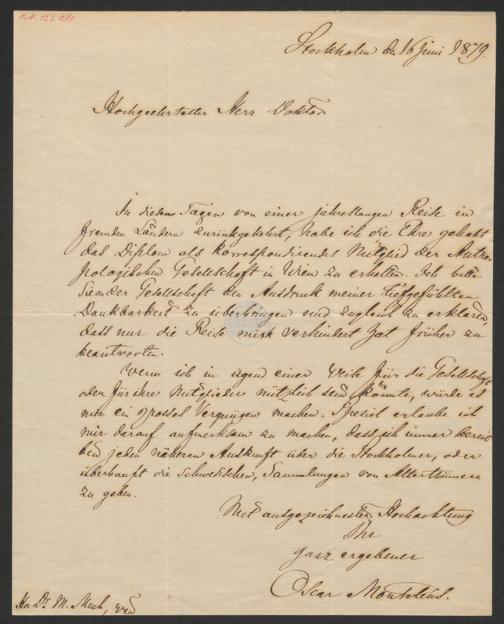 Stockholm den 16 Juni 1879.
Hochgeehrtester Herr Doktor
In diesen Tagen von einer jahreslangen Reise in
fremden Ländern zurückgekehrt, habe ich die Ehre gehabt
das Diplom als korrespondirendes Mitglied der Anthro-
pologischen Gesellschaft in Wien zu erhalten. Ich bitte
Sie der Gesellschaft den Ausdruck meiner tiefgefühlten
Dankbarkeit zu überbringen und zugleich zu erklären,
dass nur die Reise mich verhindert hat früher zu
beantworten.
Wenn ich in irgend einer Weise für die Gesellschaft
oder für ihre Mitglieder nützlich sein könnte, würde es
mir ein grosses Vergnügen machen. Speciel erlaube ich
mir darauf aufmerksam zu machen, dass ich immer bereit
bin jeden näheren Auskunft über die Stockholmer, oder
überhaupt die Schwedischen, Sammlungen von Alterthümern
zu geben.
Mit ausgezeichneter Hochachtung
Ihr
ganz ergebener
Oscar Montelius.
Hrn Dr. M. Much, Wien